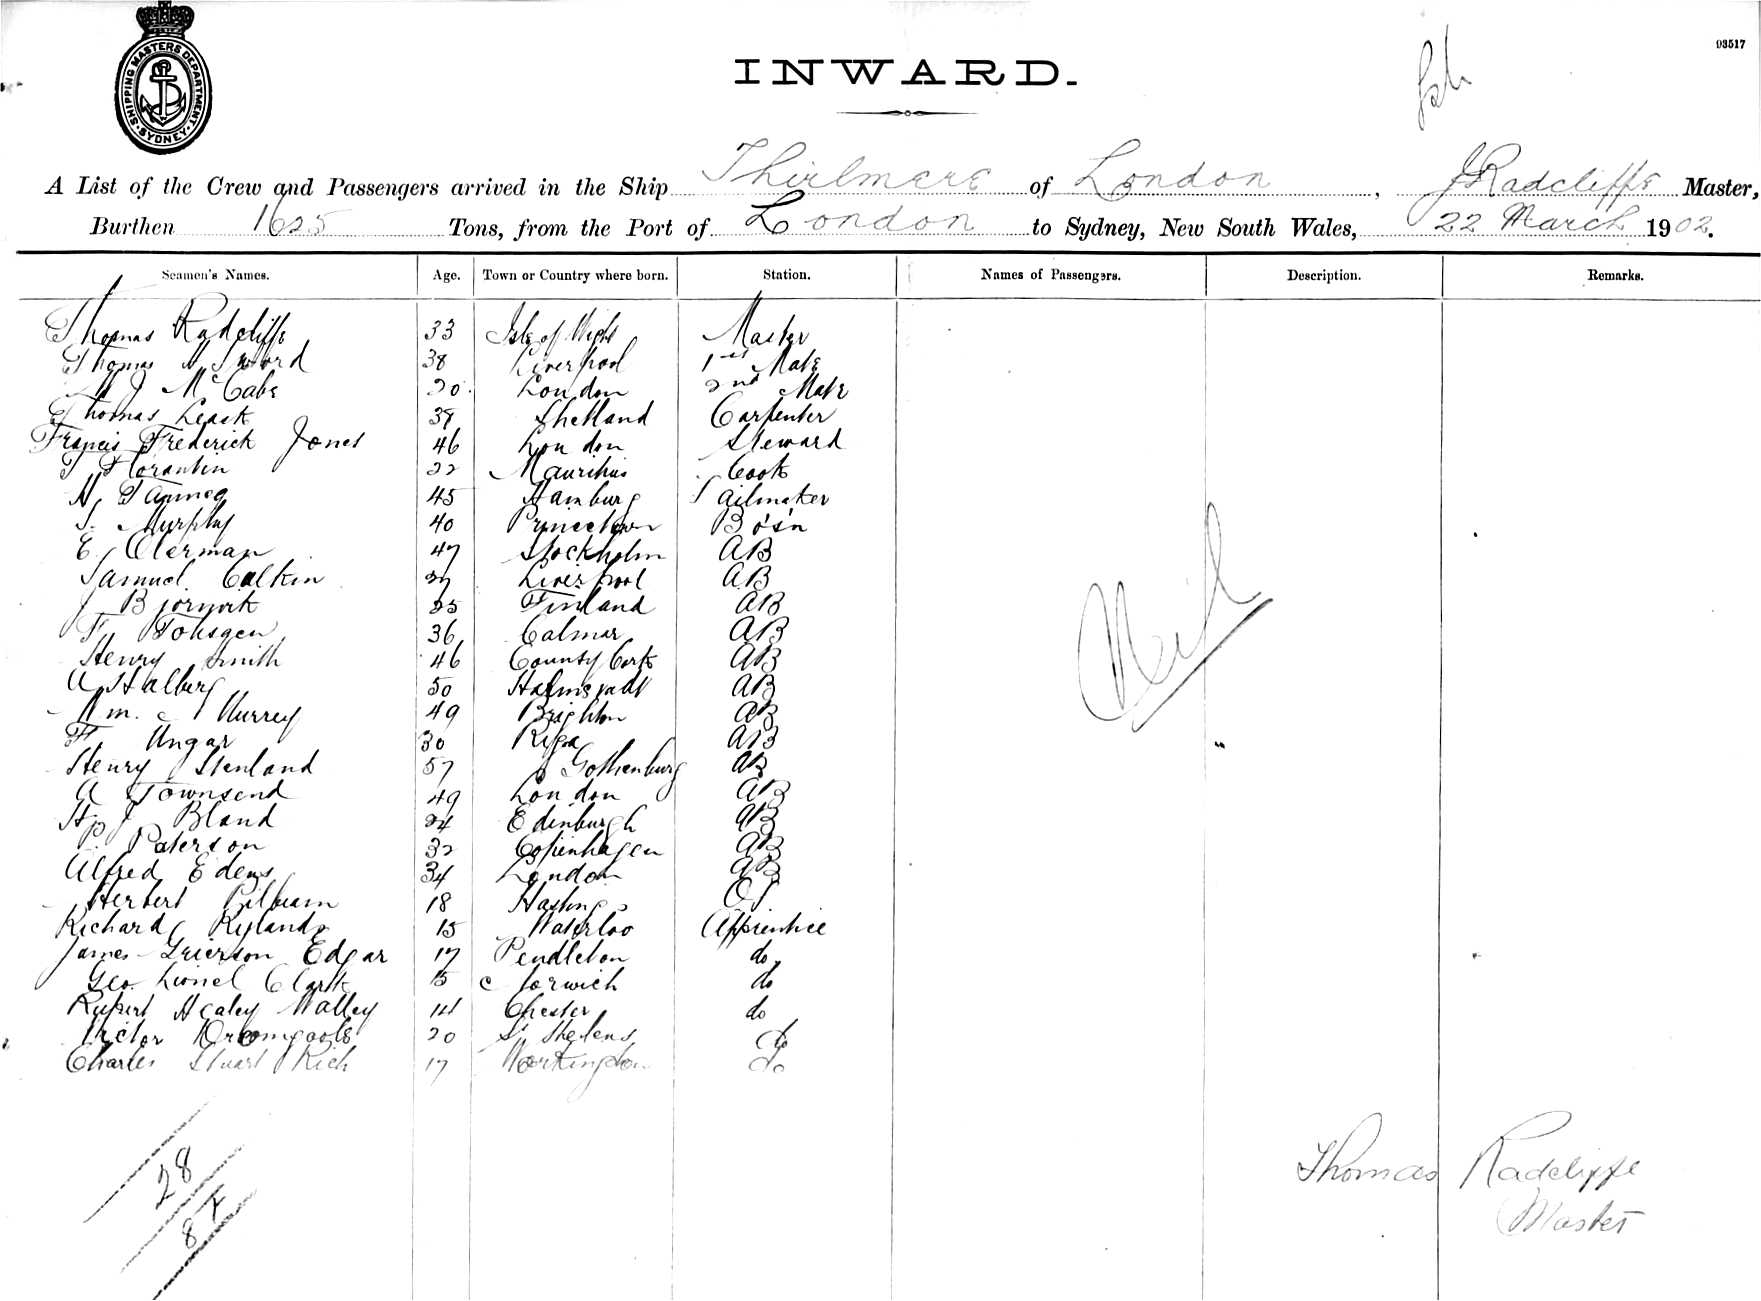 SHIPPING MASTERS DEPARTMENT. SYDNEY.
93517
INWARD.
A List of the Crew and Passengers arrived in the Ship Thirlmere of London, J Radcliffe Master,
Burthen 1625 Tons, from the Port of London to Sydney, New South Wales, 22 March 1902.
Seamen's Names. Age. Town or Country where born. Station. Names of Passengers. Description. Remarks.
Thomas Radcliffe 33 Isle of Wight Master
Thomas Sword 38 Liverpool 1st Mate
J McCabe 20 London 2nd Mate
Thomas Leask 39 Shetland Carpenter
Francis Frederick Jones 46 London Steward
Florantin 22 Mauritius Cook
45 Hamburg Sailmaker
Murphy 40 Princetown Bo's'n
E. 47 Stockholm AB
Samuel Calkin Liverpool AB
J Bjornvik 25 Finland AB
F. 36 Calmar AB
Henry Smith 46 County Cork AB
A Halberg 50 Halmstadt AB
Wm. Murrey 49 Brighton AB
F. Ungar 30 Riga AB
Henry Stenland 57 Gothenburg AB
A Townsend 49 London AB
H J Bland 24 Edinburgh AB
P. Paterson 32 Copenhagen AB
Alfred Edens 34 London AB
Herbert Pilbeam 18 Hastings OS
Richard Rylands 15 Waterloo Apprentice
James Grierson Edgar 17 Pendleton do
Geo. Lionel Clark 15 Norwich do
Rupert Healey Walley 14 Chester do
Victor Dromgoole 20 St Helens do
Charles Stuart Rich 17 Workington do
Nil
28
8
Thomas Radcliffe
Master